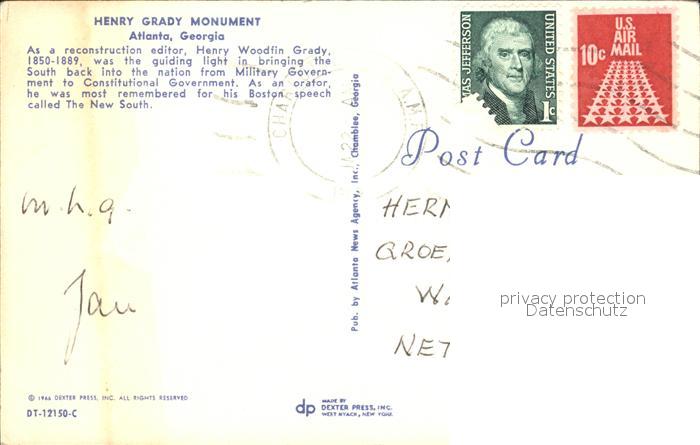 HENRY GRADY MONUMENT
Atlanta, Georgia
As a reconstruction editor, Henry Woodfin Grady,
1850-1889, was the guiding light in bringing the
South back into the nation from Military Govern-
ment to Constitutional Government. As an orator,
he was most remembered for his Boston speech
called The New South.
m.h.g.
Jan
© 1966 DEXTER PRESS, INC. ALL RIGHTS RESERVED
DT-12150-C
Pub. by Atlanta News Agency, Inc., Chamblee, Georgia
dp MADE BY
DEXTER PRESS, INC.
WEST NYACK, NEW YORK
MAS JEFFERSON
UNITED STATES
1c
U.S.
AIR
MAIL
10c
Post Card
HER
GROE
W
NET
privacy protection
Datenschutz